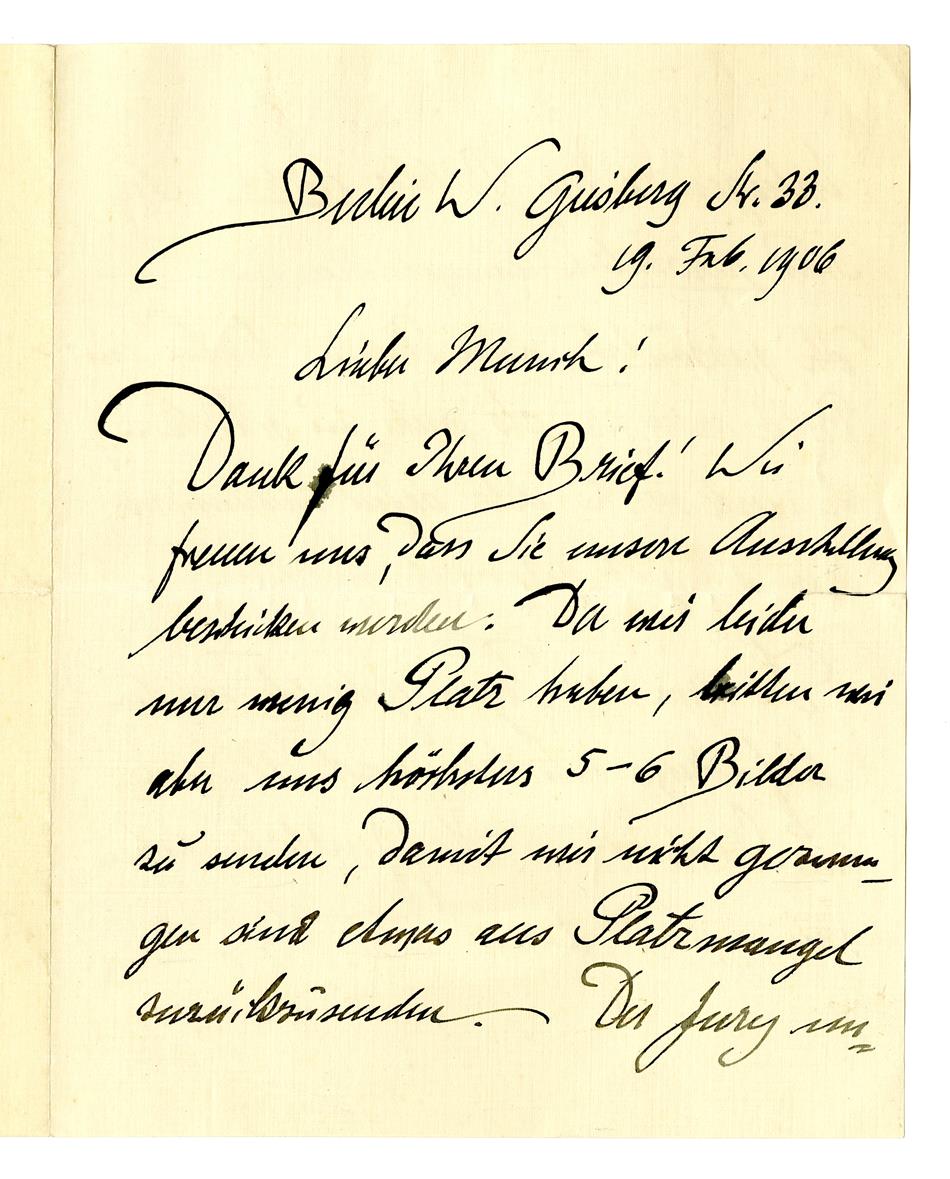 Berlin W. Geisberg Str. 33.
19. Feb. 1906
Lieber Munch!
Dank für Ihren Brief! Wir
freuen uns, dass Sie unsere Ausstellung
beschicken werden. Da wir leider
nur wenig Platz haben, bitten wir
aber uns höchstens 5-6 Bilder
zu senden, damit wir nicht gezwun-
gen sind etwas aus Platzmangel
zurückzusenden. Der Jury un=